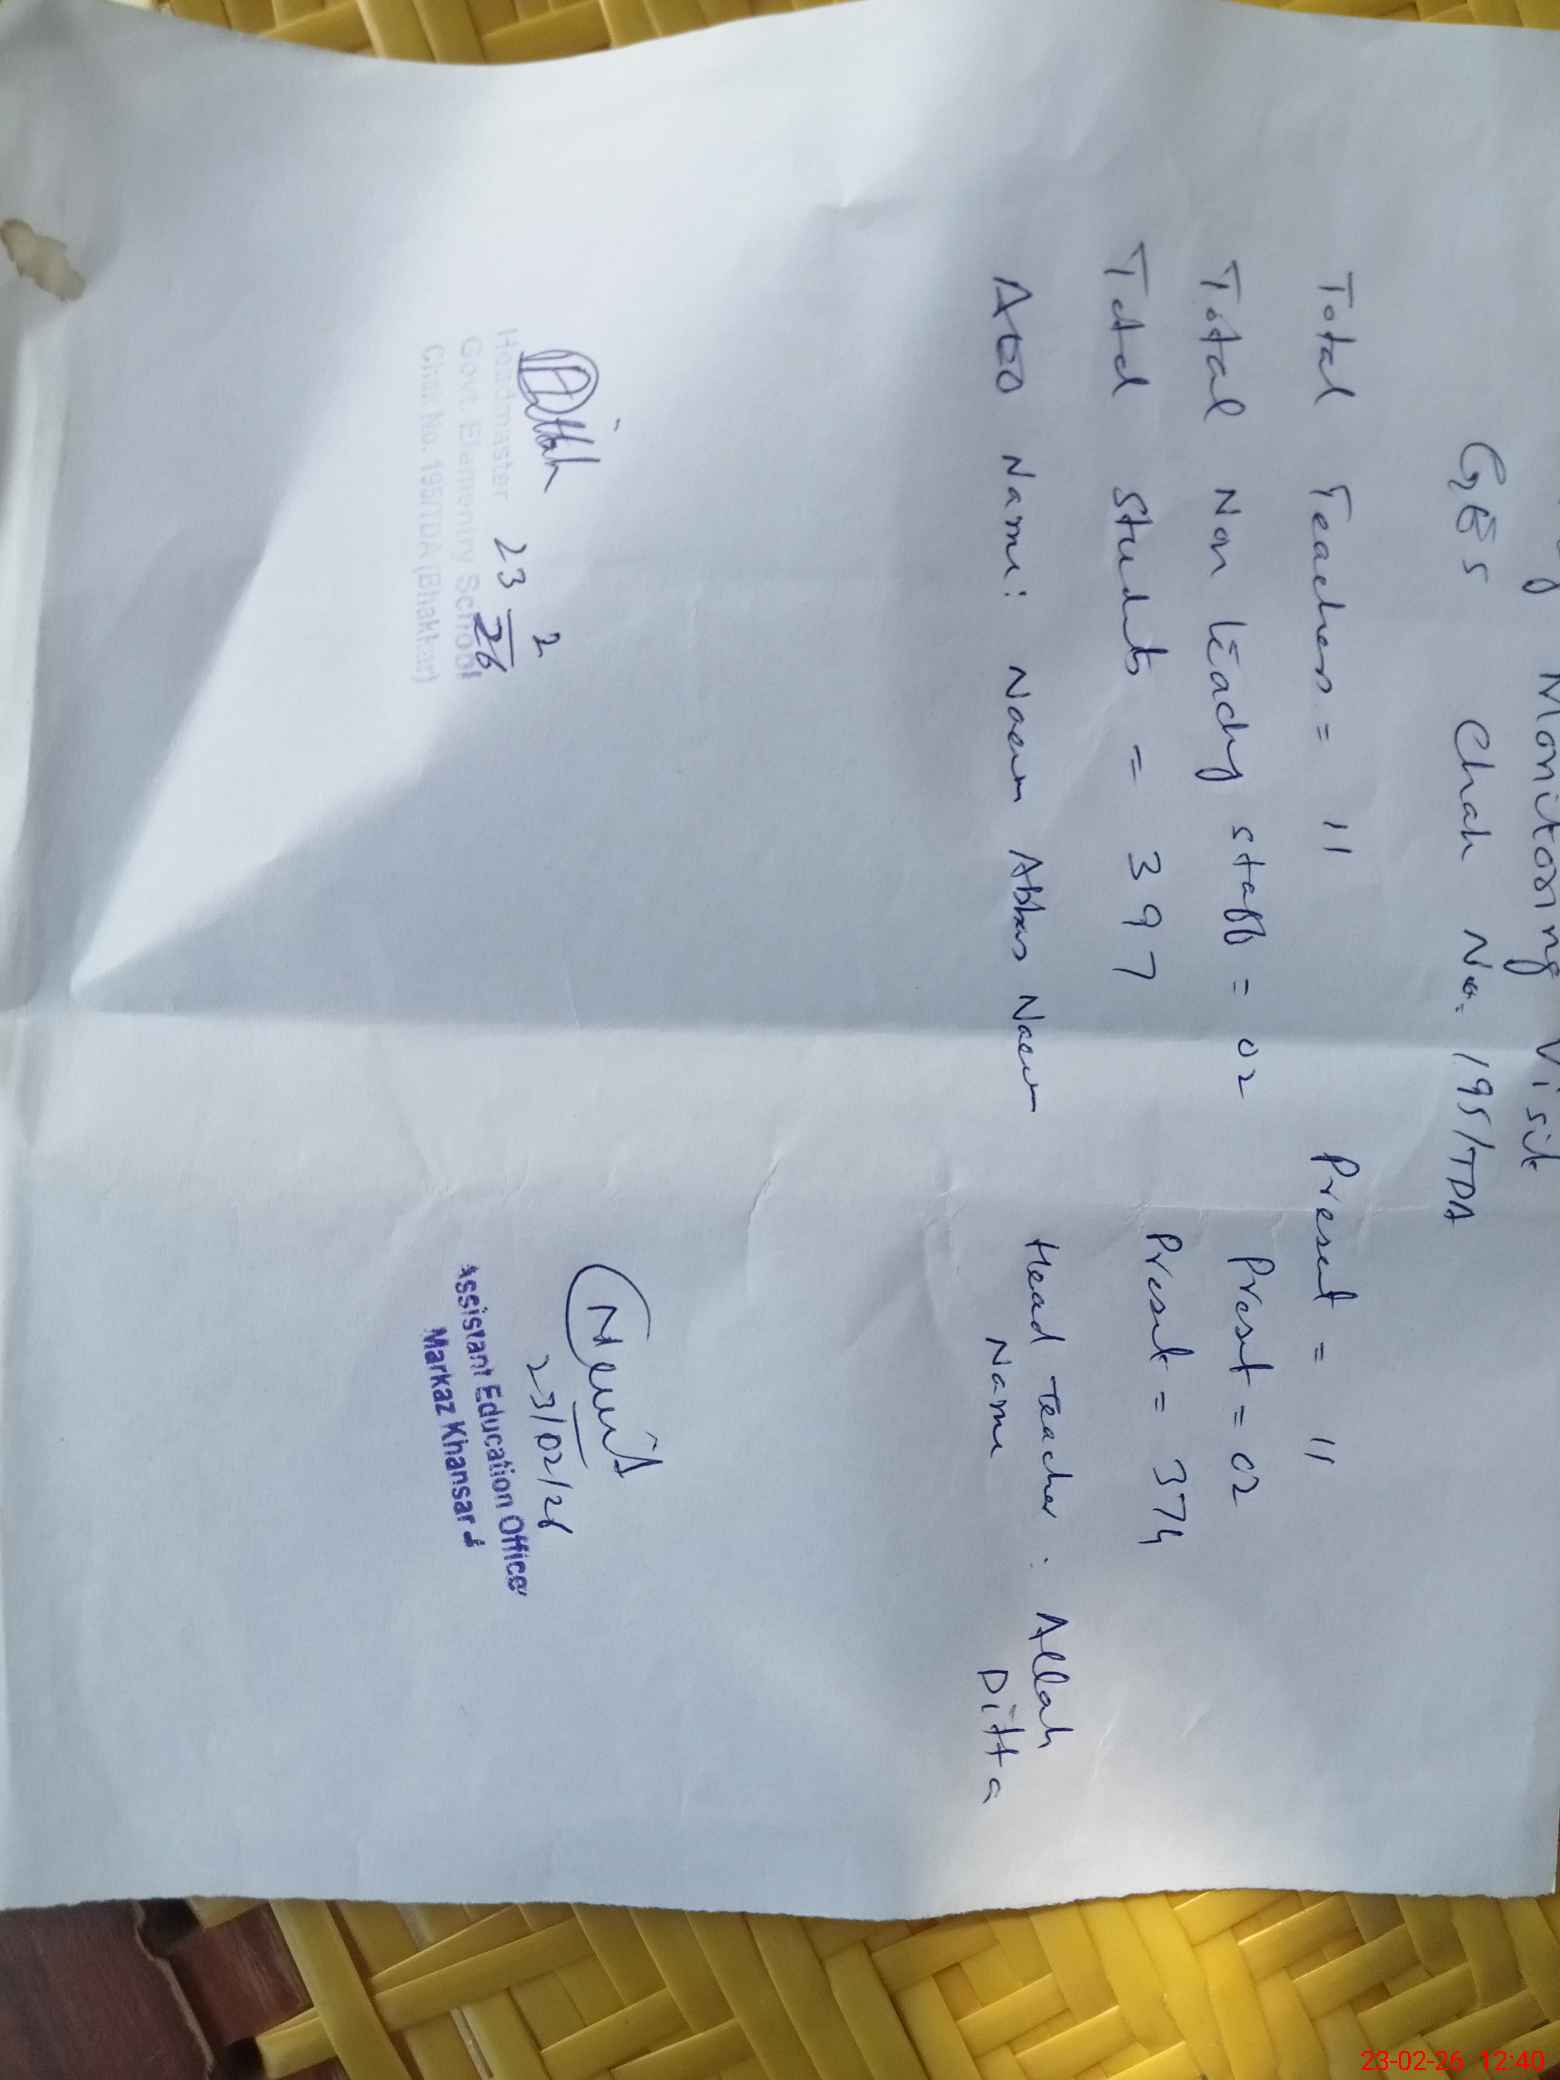 Monitoring Visit
GES Chak No. 195/TDA
Total Teachers = 11 Present = 11
Total Non Teachy staff = 02 Presut = 02
Total Students = 397 Present = 374
AEO Name: Naeem Abbas Naeem Head teacher : Allah
Name Ditta
23 2
26
Headmaster
Govt. Elementry School
Chak No. 195/TDA (Bhakkar)
23/02/26
Assistant Education Office
Markaz Khansar
23-02-26 12:40